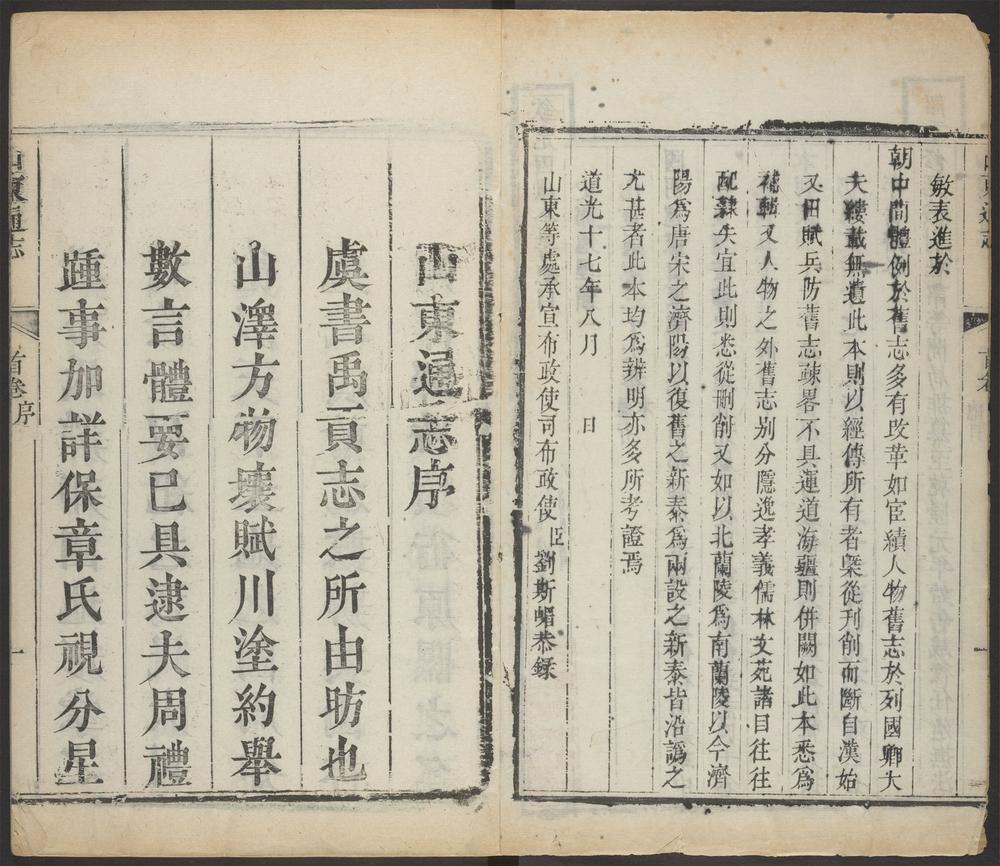 敏表進於
朝中間體例於舊志多有改革如宦績人物舊志於列國卿大
夫縷載無遺此本則以經傳所有者槩從刊削而斷自漢始
又田賦兵防舊志疎畧不具運道海疆則併闕如此本悉爲
補輯又人物之外舊志别分隱逸孝義儒林文苑諸目往往
配隸失宜此則悉從刪削又如以北蘭陵爲南蘭陵以今濟
陽爲唐宋之濟陽以復舊之新泰爲兩設之新泰皆沿譌之
尤甚者此本均爲辨明亦多所考證焉
道光十七年八月 日
山東等處承宣布政使司布政使臣劉斯嵋恭錄
山東通志序
虞書禹貢志之所由昉也
山澤方物壤賦川塗約舉
數言體要已具逮夫周禮
踵事加詳保章氏視分星
山東通志
首卷 序
一